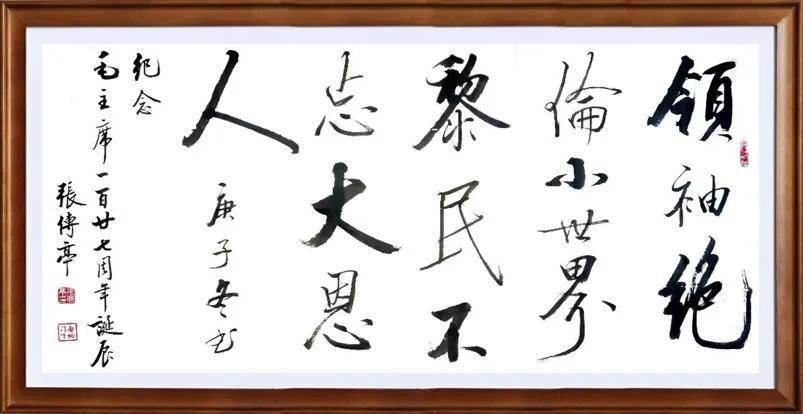 領袖絶
倫小世界
黎民不
忘大恩
人
庚子冬书
紀念
毛主席一百廿七周年誕辰
張傳亭